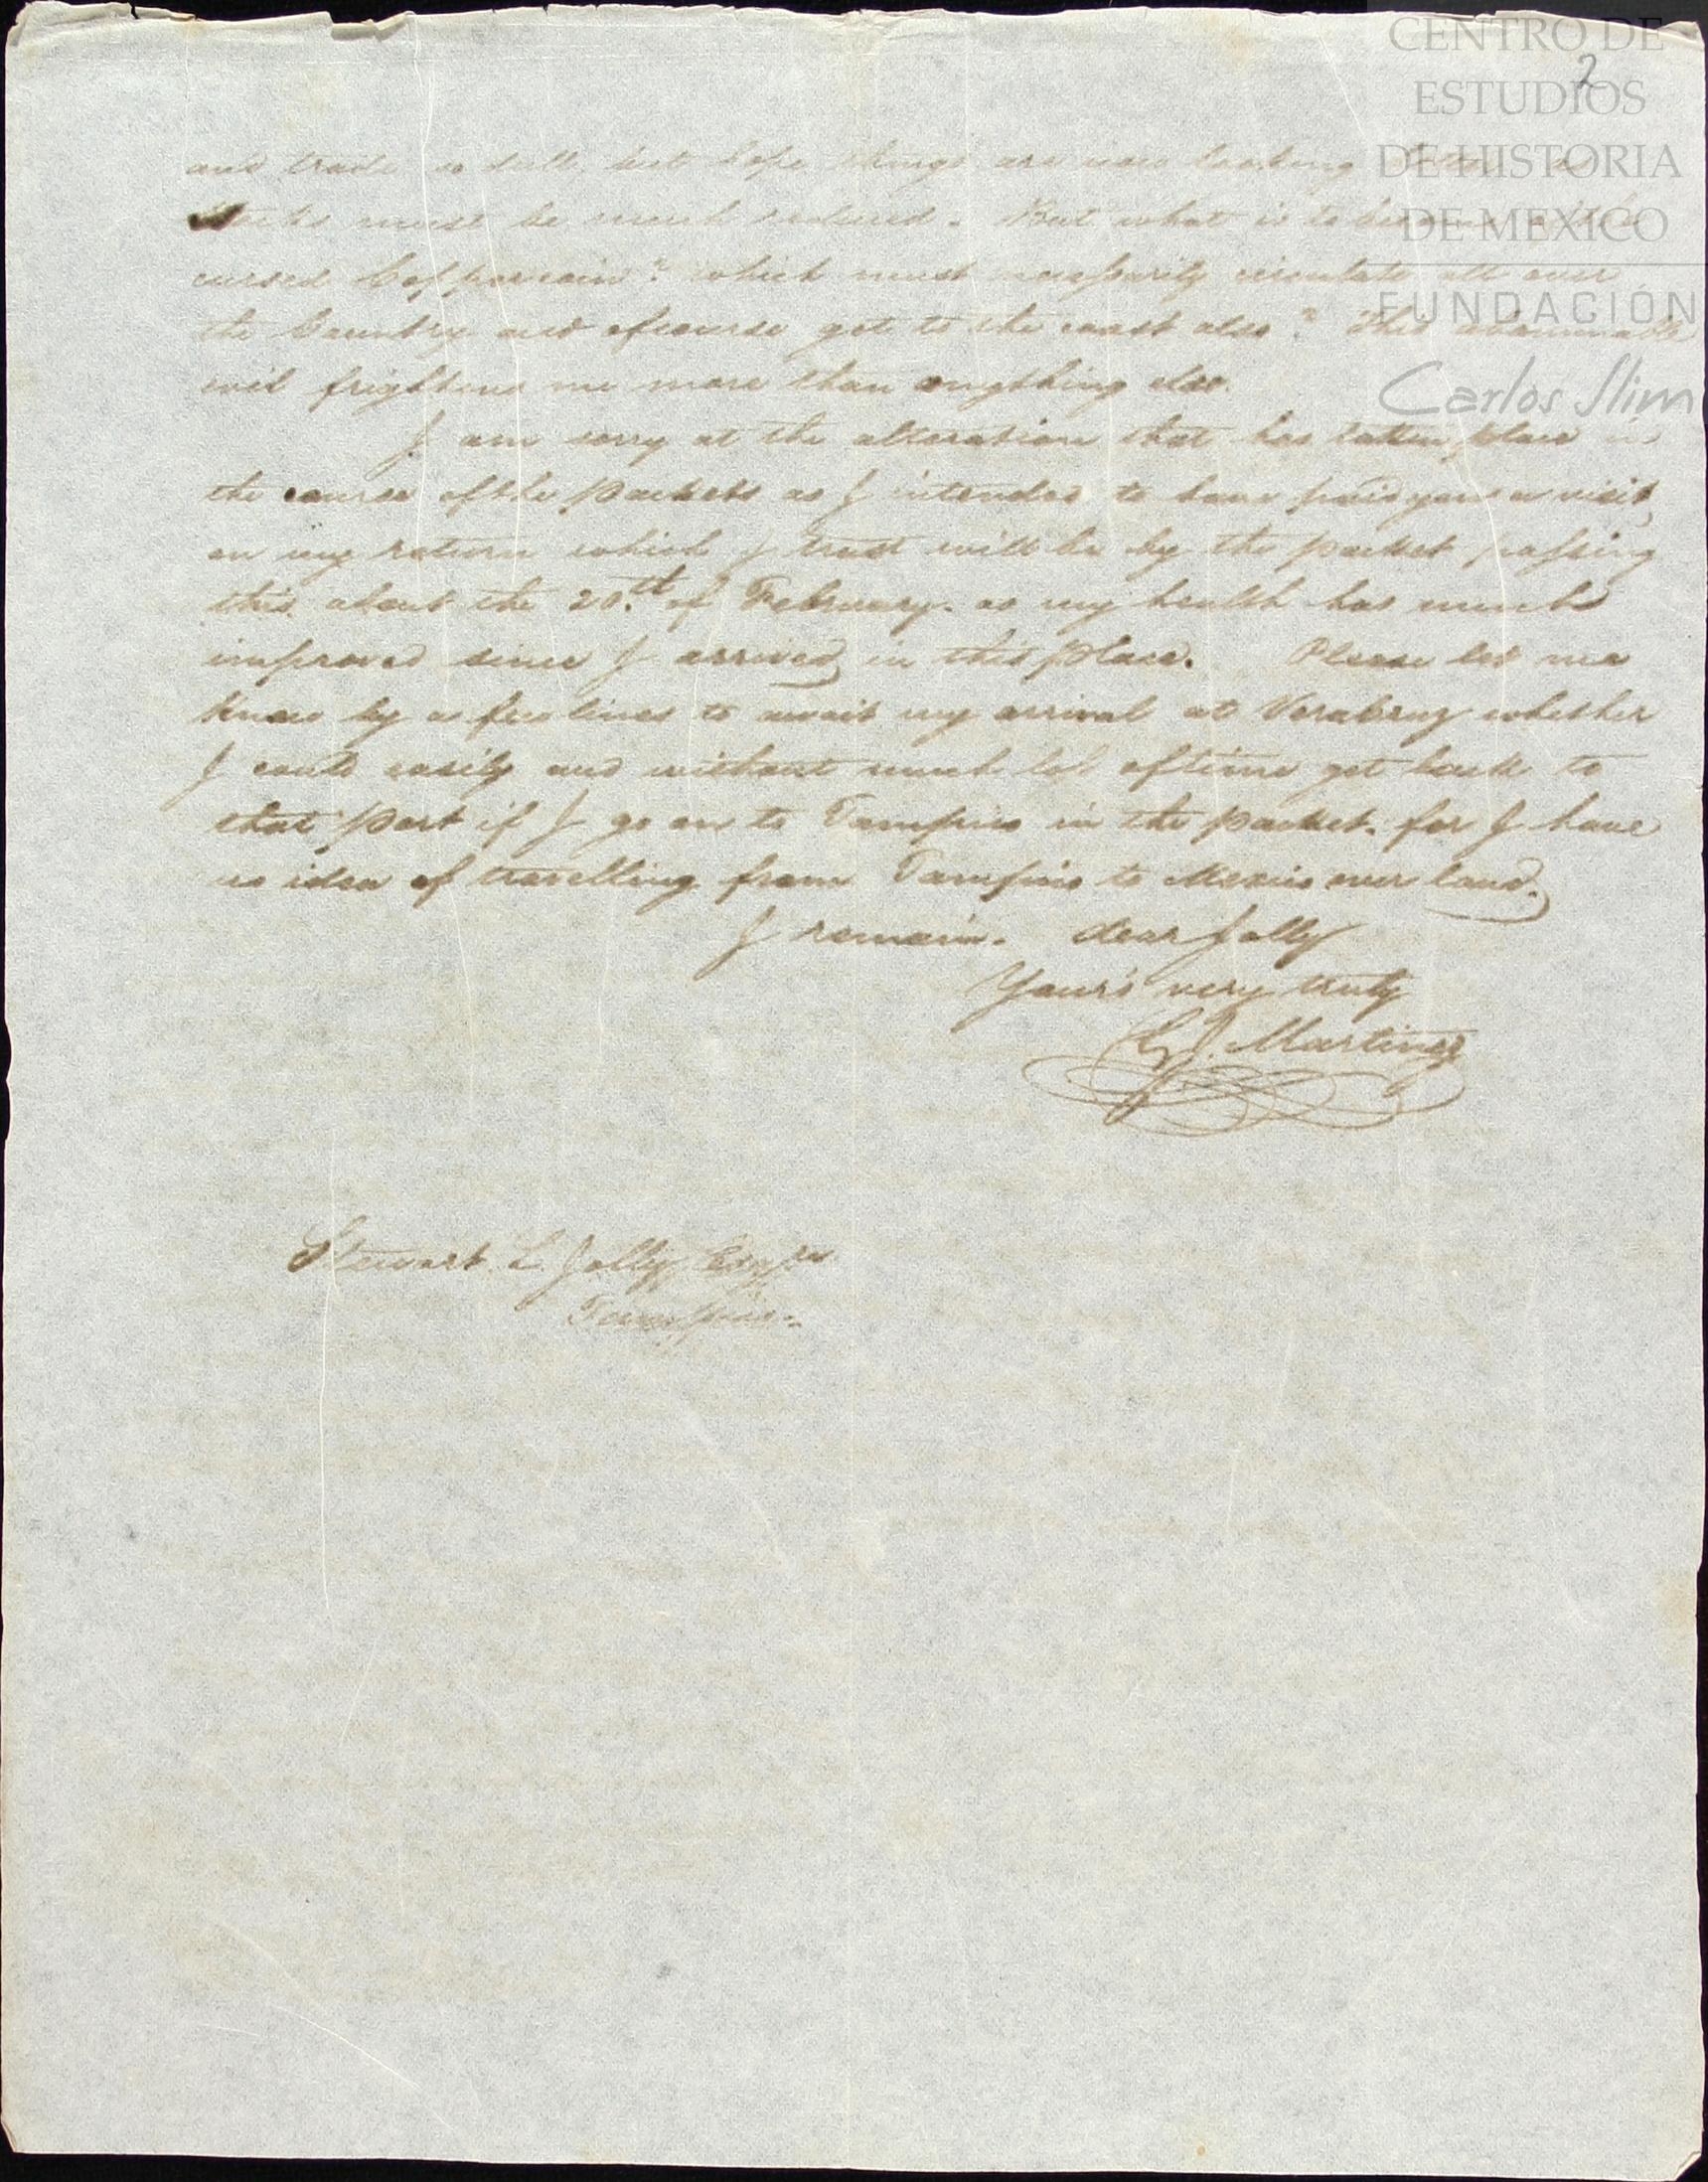 CENTRO DE
ESTUDIOS
DE HISTORIA
DE MEXICO
FUNDACIÓN
Carlos Slim
2
and trade so dull, but hope things are now looking better as
Stocks must be much reduced. But what is to become of the
cursed Copper coin? which must necessarily circulate all over
the Country and of course get to the coast also? This abominable
evil frightens me more than anything else.
I am sorry at the alteration that has taken place in
the course of the Packets as I intended to have paid you a visit,
on my return which I trust will be by the packet passing
this about the 20th of February. as my health has much
improved since I arrived in this place. Please let me
know by a few lines to await my arrival at Verabruz whether
I could easily and without much loss of time get back to
that Port if I go on to Tampico in the packet. for I have
no idea of travelling from Tampico to Mexico over land.
I remain. dear Jolly
Your's very truly
G. J. Martinez
Stewart L. Jolly Esqre
Tampico.